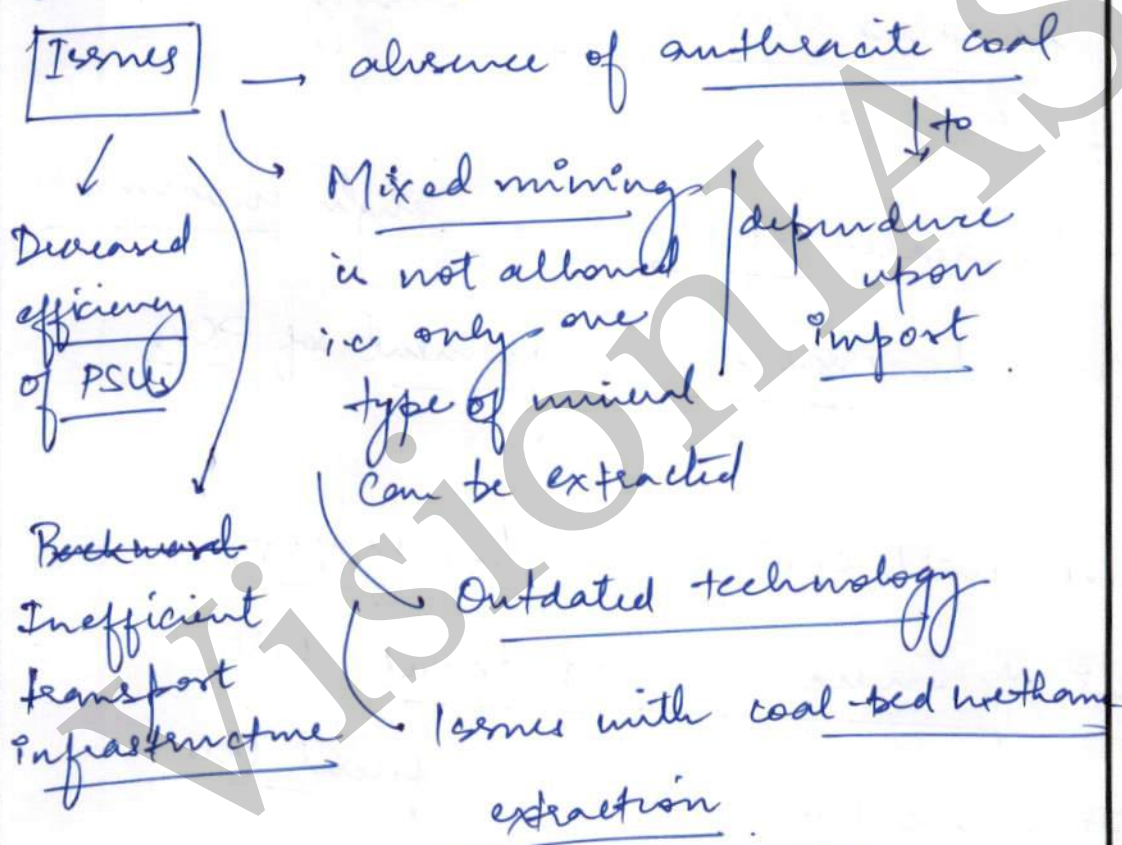 Issues → absence of anthracite coal
↓ to
dependence
upon
import.
Mixed mining
is not allowed
i.e only one
type of mineral
can be extracted
Decreased
efficiency
of PSUs
Backward
Inefficient
transport
infrastructure
Outdated technology
Issues with coal-bed methane
extraction.
VisionIAS